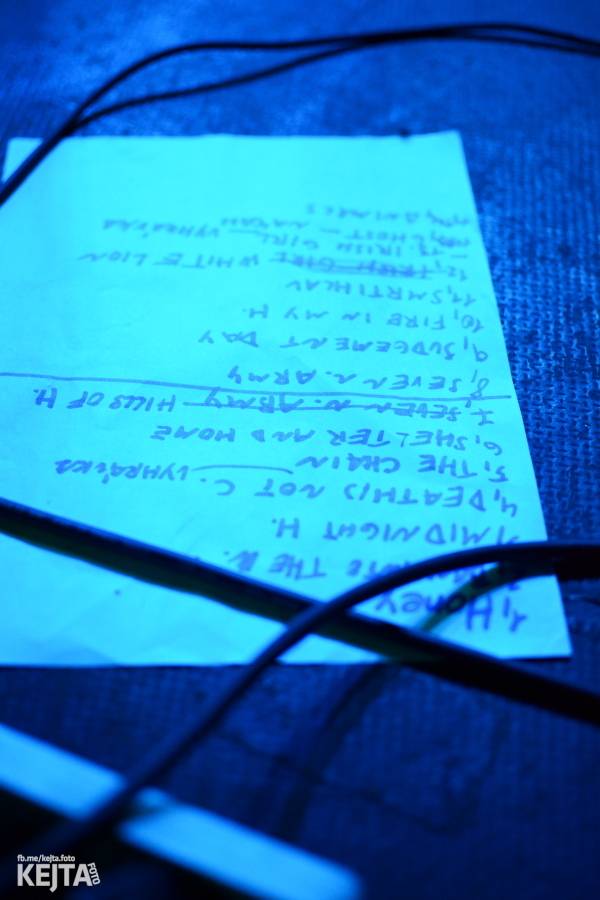 1, Honey
THE
3, MIDNIGHT H.
4, DEATH IS NOT C. VYHRÁVKA
5, THE CHAIN
6, SHELTER AND HOME
7, SEVEN N. ARMY HILLS OF H.
8, SEVEN N. ARMY
9, JUDGEMENT DAY
10, FIRE IN MY H.
11, SMRTIHLAV
12, IRISH GIRL WHITE LION
13, IRISH GIRL VYHRÁVKA
GHOST -
fb.me/kejta.foto
KEJTA FOTO